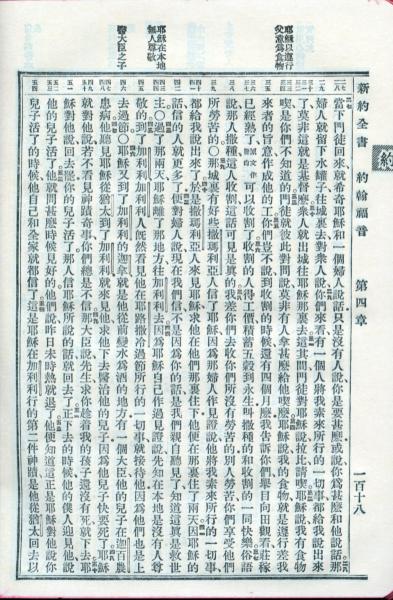 新約全書 約翰福音 第四章 一百十八
耶穌以遵行
父意爲食物
耶穌在本地
無人尊敬
醫大臣之子
當下門徒回來就希奇耶穌和一個婦人說話只是沒有人說你是要甚麼或說你爲甚麼和他說話那
婦人就留下水罐子往城裏去對衆人說你們來看有一個人將我素來所行的一切事都給我說出來
了莫非這就是基督麼衆人就出城往耶穌那裏去這其間門徒對耶穌說拉比請喫耶穌說我有食物
喫是你們不知道的門徒就彼此對問說莫非有人拿甚麼給他喫麼耶穌說我的食物就是遵行差我
來者的旨意作成他的工你們豈不說到收割的時候還有四個月麼我告訴你們舉目向田觀看莊稼
已經熟了可以收割了收割的人得工價積蓄五穀到永生叫撒種的和收割的一同快樂俗語
說那人撒種這人收割這話可見是真的我差你們去收你們所沒有勞苦的別人勞苦你們享受他們
所勞苦的○那城裏有好些撒瑪利亞人信了耶穌因爲那婦人作見證說他將我素來所行的一切事
都給我說出來了於是撒瑪利亞人來見耶穌求他在他們那裏住下他便在那裏住了兩天因耶穌的
話信的人就更多了便對婦人說現在我們信不是因爲你的話是我們親自聽見了知道這真是救世
主○過了那兩天耶穌離了那地方往加利利去因爲耶穌自己作過見證說先知在本地是沒有人尊
敬的到了加利利加利利人旣然看見他在耶路撒冷過節所行的一切事就接待他因爲他們也是上
去過節○耶穌又到了加利利的迦拿就是他從前變水爲酒的地方有一個大臣他的兒子在迦百農
患病他聽見耶穌從猶太到了加利利就來見他求他下去醫治他的兒子因爲他兒子快要死了耶穌
就對他說若不看見神蹟奇事你們總是不信那大臣說先生求你趁着我的孩子還沒有死就下去耶
穌對他說回去罷你的兒子活了那人信耶穌所說的話就回去了正下去的時候他的僕人迎見他說
他的兒子活了他就問甚麼時候見好的他們說昨日未時熱就退了他便知道這正是耶穌對他說你
兒子活了的時候他自己和全家就都信了這是耶穌在加利利行的第二件神蹟是他從猶太回去以